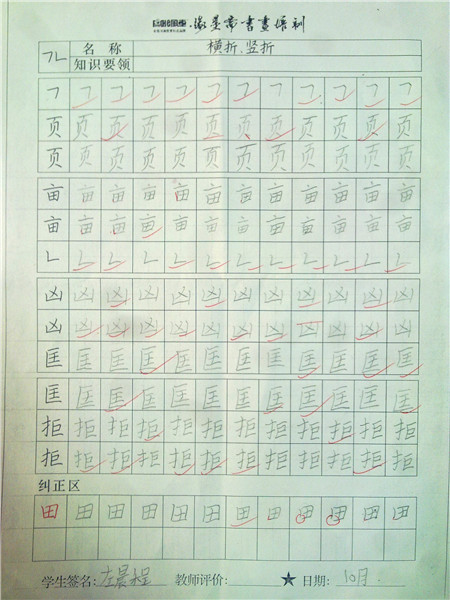 ㇕㇗ 名称 横折、竖折
知识要领
㇕ ㇕ ㇕ ㇕ ㇕ ㇕ ㇕ ㇕ ㇕ ㇕ ㇕ ㇕
页 页 页 页 页 页 页 页 页 页 页 页
页 页 页 页 页 页 页 页 页 页 页 页
亩 亩 亩 亩 亩 亩 亩 亩 亩 亩 亩 亩
亩 亩 亩 亩 亩 亩 亩 亩 亩 亩 亩 亩
㇗ ㇗ ㇗ ㇗ ㇗ ㇗ ㇗ ㇗ ㇗ ㇗ ㇗ ㇗
凶 凶 凶 凶 凶 凶 凶 凶 凶 凶 凶 凶
凶 凶 凶 凶 凶 凶 凶 凶 凶 凶 凶 凶
匡 匡 匡 匡 匡 匡 匡 匡 匡 匡 匡 匡
匡 匡 匡 匡 匡 匡 匡 匡 匡 匡 匡 匡
拒 拒 拒 拒 拒 拒 拒 拒 拒 拒 拒 拒
拒 拒 拒 拒 拒 拒 拒 拒 拒 拒 拒 拒
纠正区
田 田 田 田 田 田 田 田 田 田 田 田
学生签名: 左晨程 教师评价: ★ 日期: 10月